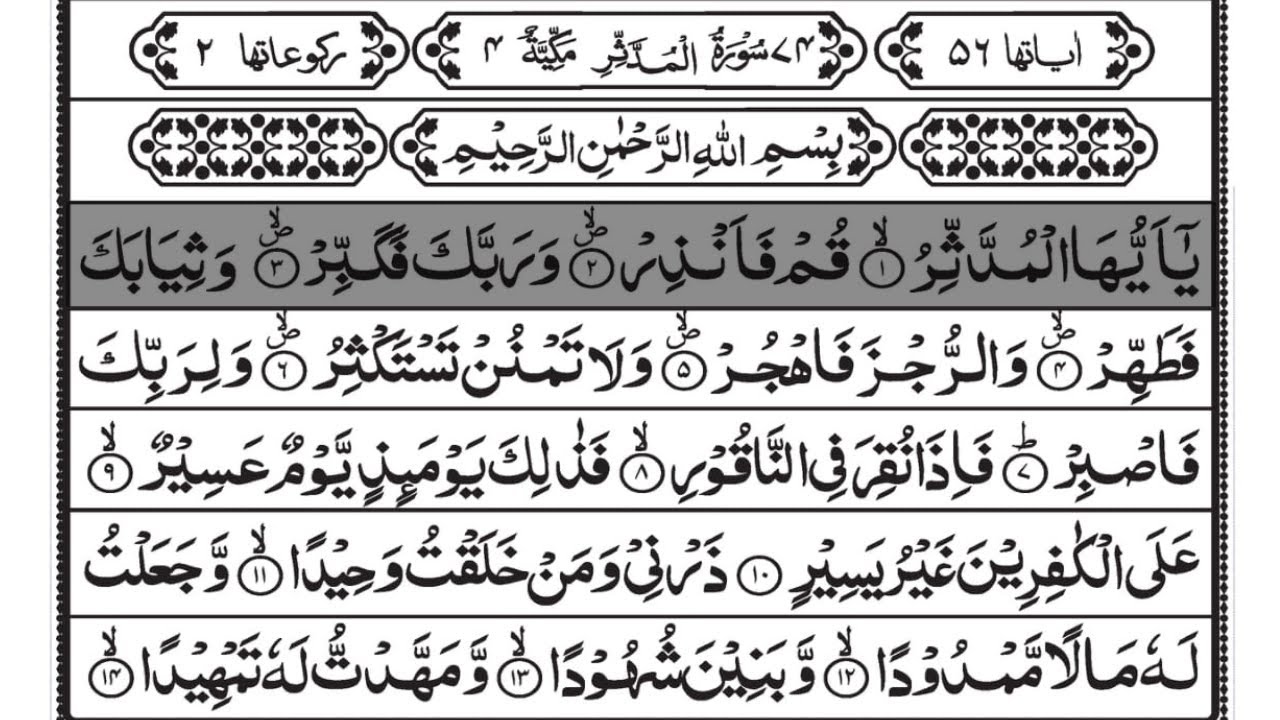 اٰياتها ۵۶ ۷۴ سُوْرَةُ الْمُدَّثِّرِ مَكِّيَّةٌ ۴ ركوعاتها ۲
بِسْمِ اللهِ الرَّحْمٰنِ الرَّحِيْمِ
يٰۤاَيُّهَا الْمُدَّثِّرُ ۙ﴿۱﴾ قُمْ فَاَنْذِرْ ۪ۙ﴿۲﴾ وَرَبَّكَ فَكَبِّرْ ۪ۙ﴿۳﴾ وَثِيَابَكَ
فَطَهِّرْ ۪ۙ﴿۴﴾ وَالرُّجْزَ فَاهْجُرْ ۪ۙ﴿۵﴾ وَلَا تَمْنُنْ تَسْتَكْثِرُ ۪ۙ﴿۶﴾ وَلِرَبِّكَ
فَاصْبِرْ ؕ﴿۷﴾ فَاِذَا نُقِرَ فِي النَّاقُوْرِ ۙ﴿۸﴾ فَذٰلِكَ يَوْمَئِذٍ يَّوْمٌ عَسِيْرٌ ۙ﴿۹﴾
عَلَى الْكٰفِرِيْنَ غَيْرُ يَسِيْرٍ ﴿۱۰﴾ ذَرْنِيْ وَمَنْ خَلَقْتُ وَحِيْدًا ۙ﴿۱۱﴾ وَّجَعَلْتُ
لَهٗ مَالًا مَّمْدُوْدًا ۙ﴿۱۲﴾ وَّبَنِيْنَ شُهُوْدًا ۙ﴿۱۳﴾ وَّمَهَّدْتُّ لَهٗ تَمْهِيْدًا ۙ﴿۱۴﴾